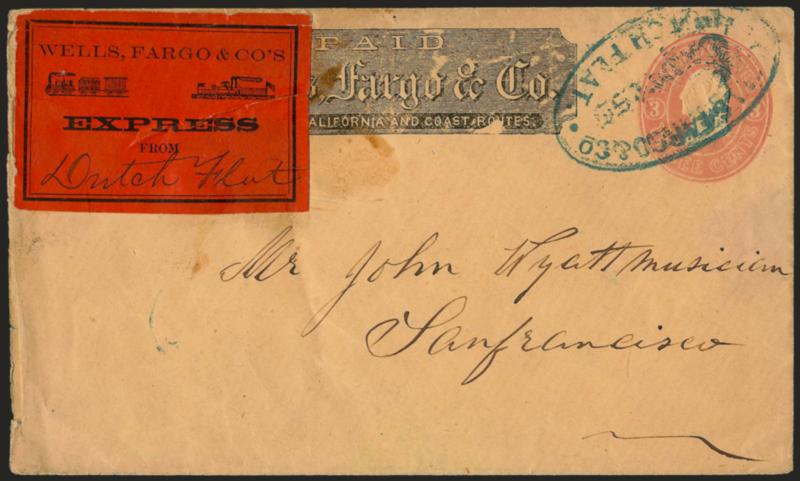 WELLS, FARGO & CO'S
EXPRESS
FROM
Dutch Flat
PAID
Fargo & Co.
CALIFORNIA AND COAST ROUTES.
DUTCH FLAT
WELLS FARGO & CO
3
THREE CENTS
Mr John Wyatt musician
Sanfrancisco